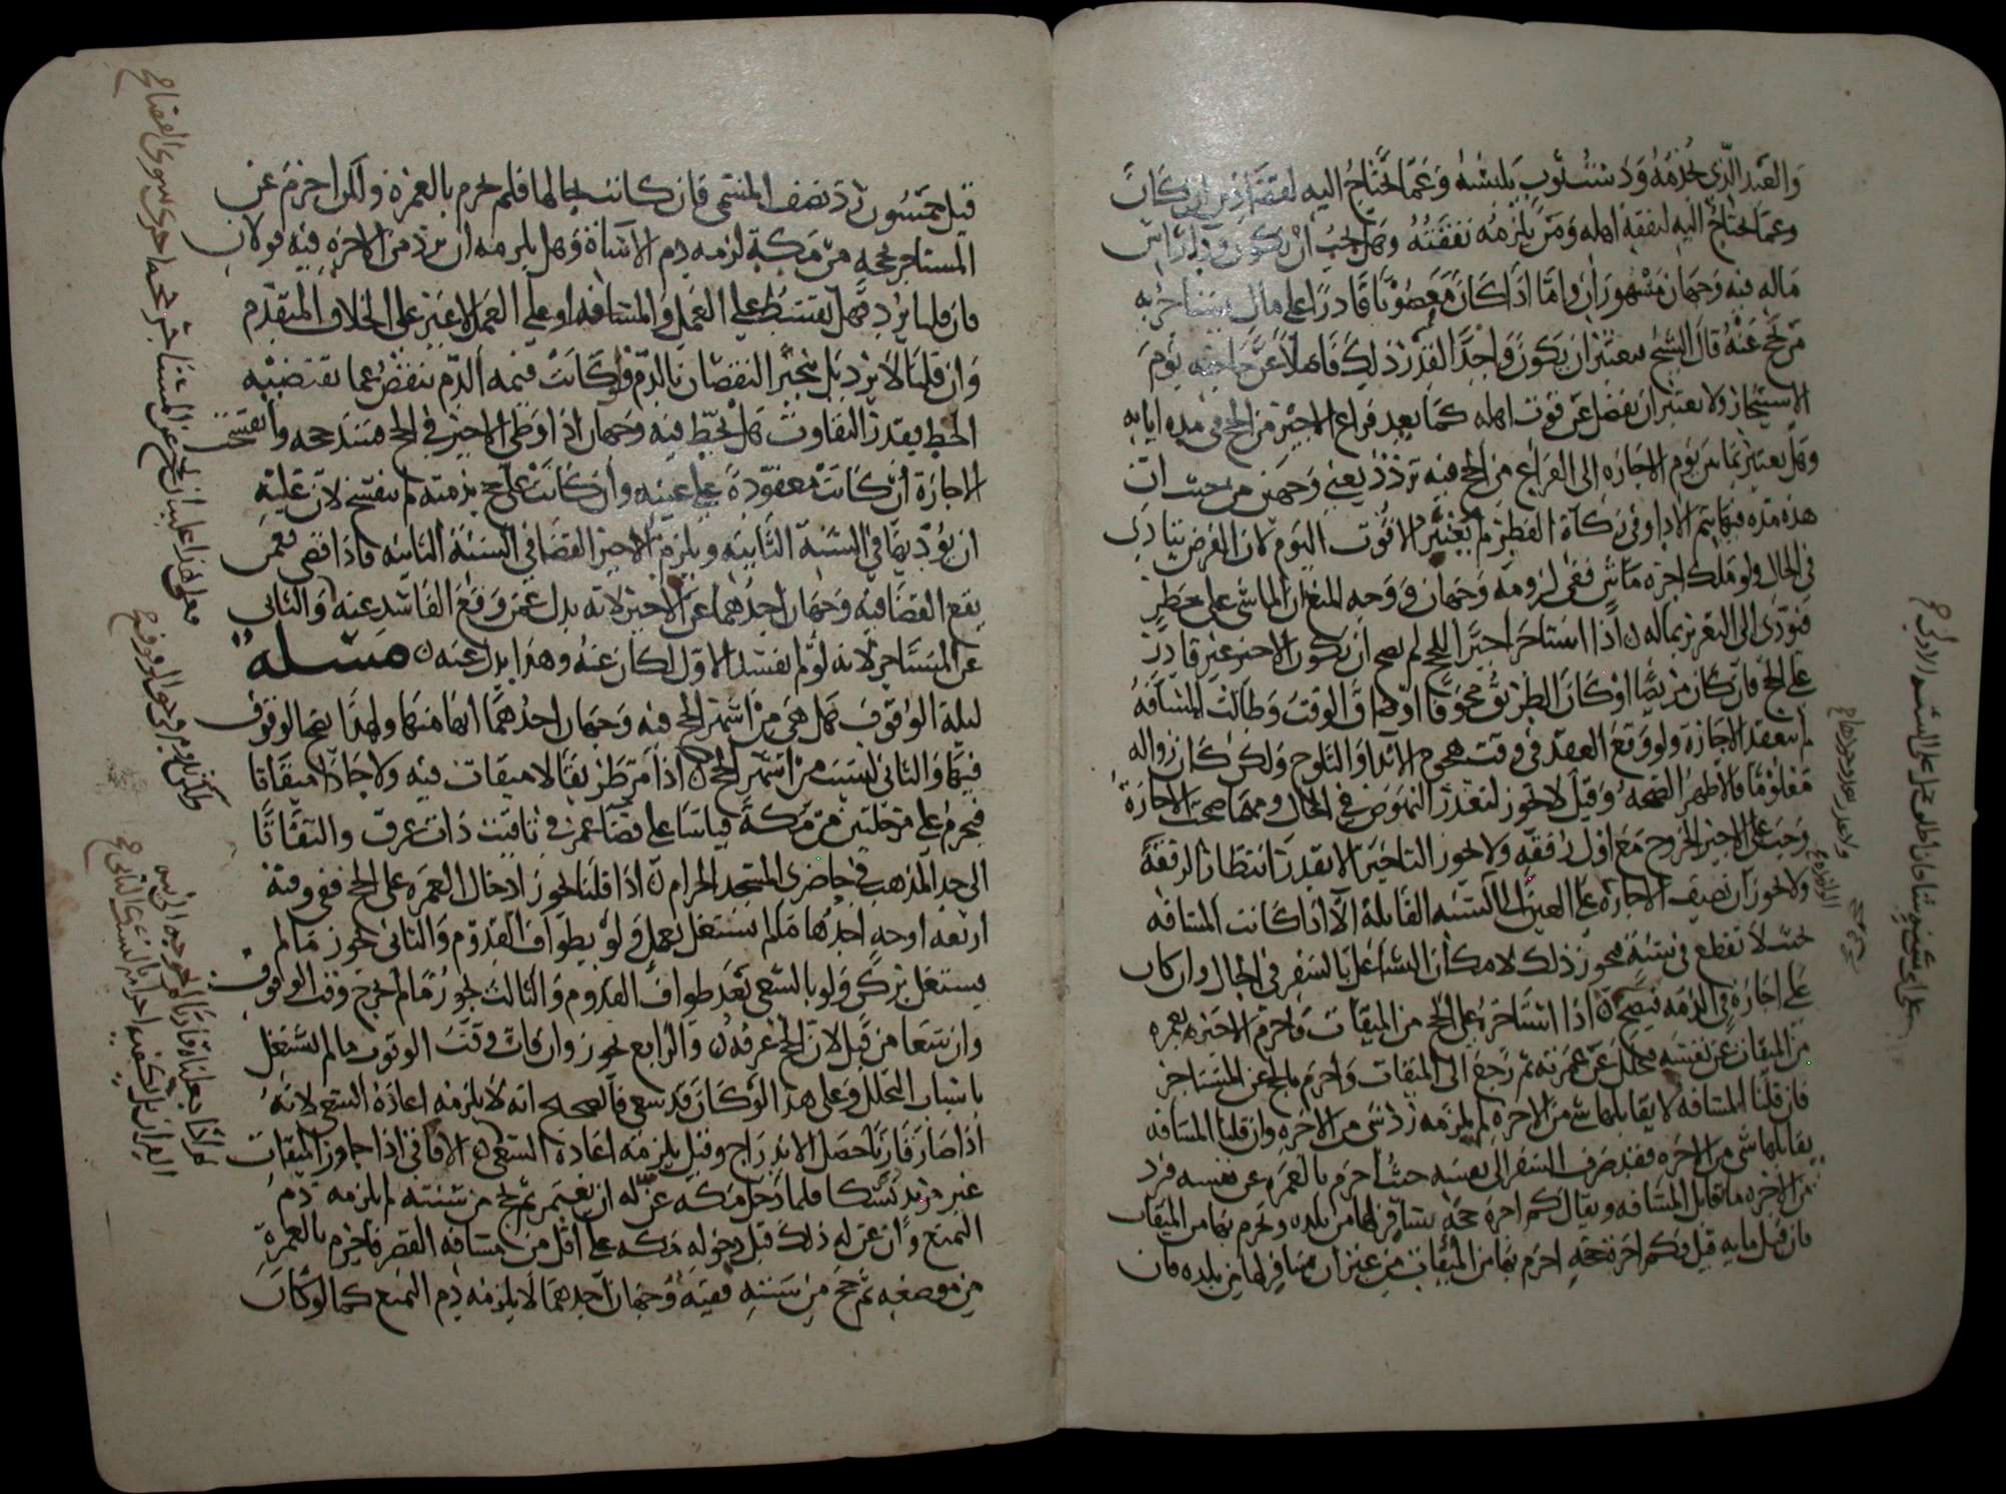 والعبد الذي يخدمه ودست ثوب يلبسه وعما يحتاج اليه لقضا دين ان كان
وعما يحتاج اليه لنفقة اهله ومن يلزمه نفقته وهل يجب ان يكون وراس
ماله فيه وجهان مشهوران واما اذا كان معضوبا قادرا على مال يستاجر به
من يحج عنه قال الشيخ يعتبر ان يكون واجدا لقدر ذلك فاضلا عن حاجته يوم
الاستيجار ولا يعتبر ان يفضل عن قوت اهله كما بعد فراغ الاجير من الحج في مدة ايابه
وهل يعتبر ما بين يوم الاجارة الى الفراغ من الحج فيه تردد يعني وجهين من حيث ان
هذه مدة فيها يتم الاداء وفي زكاة الفطر لم يعتبر الا قوت اليوم لان الفرض يتادى
في الحال ولو ملك اجرة ماش ففي لزومه وجهان ووجه المنع ان الماشي على خطر
فيؤدي الى التغرير بماله اذا استاجر اجيرا للحج لم يصح ان يكون الاجير غير قادر
على الحج فان كان مريضا او كان الطريق مخوفا او ضاق الوقت وطالت المسافة
لم تنعقد الاجارة ولو وقع العقد في وقت هجوم الانداء والثلوج ولكن كان زواله
معلوما فالاظهر الصحة وقيل لا يجوز لتعذر النهوض في الحال ومهما صحت الاجارة
وجب على الاجير الخروج مع اول رفقه ولا يجوز التاخير الا بقدر انتظار الرفقة
ولا يجوز ان نضيف الاجارة على العين الى السنة القابلة الا اذا كانت المسافة
بحيث لا تقطع في سنة فيجوز ذلك لامكان التشاغل بالسفر في الحال وان كان
على اجارة في الذمة فيصح اذا استاجره على الحج من الميقات فاحرم الاجير بعمرة
من الميقات عن نفسه فتحلل عن عمرته ثم رجع الى الميقات واحرم بالحج عن المستاجر
فان قلنا المسافة لا يقابلها شي من الاجرة لم يلزمه رد شي من الاجرة وان قلنا المسافة
يقابلها شي من الاجرة فقد صرف السفر الى نفسه حيث احرم بالعمرة عن نفسه فرد
من الاجرة ما قابل المسافة ويقال كم اجرة حجة يسافر لها من بلده ويحرم بها من الميقات
فان قيل مايه قيل فكم اجرة حجة احرم بها من الميقات من غير ان يسافر لها من بلده فان
قيل خمسون رد نصف المسمى فان كانت بحالها فلم يحرم بالعمرة ولكن احرم عن
المستاجر بحجة من مكة لزمه دم الاساة وهل يلزمه ان يرد من الاجرة فيه قولان
فان قلنا يرد فهل يقسط على العمل والمسافة او على العمل لا غير على الخلاف المتقدم
وان قلنا لا يرد بل ينجبر النقصان بالدم فلو كانت قيمة الدم تنقص عما تقتضيه
الحط بقدر التفاوت هل يحط فيه وجهان اذا وطئ الاجير في الحج فسد حجه وانفسخت
الاجارة ان كانت معقودة على عينه وان كانت على حج بذمته لم تنفسخ لان عليه
ان يؤديها في السنة الثانية ويلزم الاجير القضا في السنة الثانية فاذا قضى فعمن
يقع القضا فيه وجهان احدهما عن الاجير لانه بدل عمن وقع الفاسد عنه والثاني
عن المستاجر لانه لو لم يفسد الاول لكان عنه وهذا بدل عنه مسئلة
ليلة الوقوف هل هي من اشهر الحج فيه وجهان احدهما انها منها ولهذا يصح الوقوف
فيها والثاني ليست من اشهر الحج اذا مر طريقا لا ميقات فيه ولا حاذا ميقاتا
فيحرم على مرحلتين من مكة قياسا على قضا عمر في تاقيت ذات عرق والتفاتا
الى حد المذهب في حاضري المسجد الحرام اذا قلنا يجوز ادخال العمرة على الحج ففي وقته
اربعة اوجه احدها ما لم يشتغل بعمل ولو بطواف القدوم والثاني يجوز ما لم
يشتغل بركن ولو بالسعي بعد طواف القدوم والثالث يجوز ما لم يخرج وقت الوقوف
وان سعا من قبل لان الحج عرفة والرابع يجوز وان فات وقت الوقوف ما لم يشتغل
باسباب التحلل وعلى هذا لو كان قد سعى فالصحيح انه لا يلزمه اعادة السعي لانه
اذا صار قارنا حصل الاندراج وقيل يلزمه اعادة السعي الافاقي اذا جاوز الميقات
غير مريد نسكا فلما دخل مكة عن له ان يعتمر ثم يحج من سنته لم يلزمه دم
التمتع وان عن له ذلك قبل دخوله مكة على اقل من مسافة القصر فاحرم بالعمرة
من موضعه ثم حج من سنته ففيه وجهان احدهما لا يلزمه دم التمتع كما لو كان